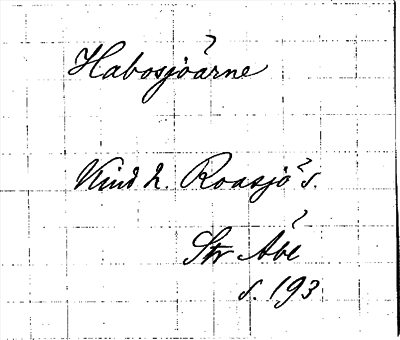 Habosjöarne
Kind h. Roasjö s.
Str Åbl
s. 193